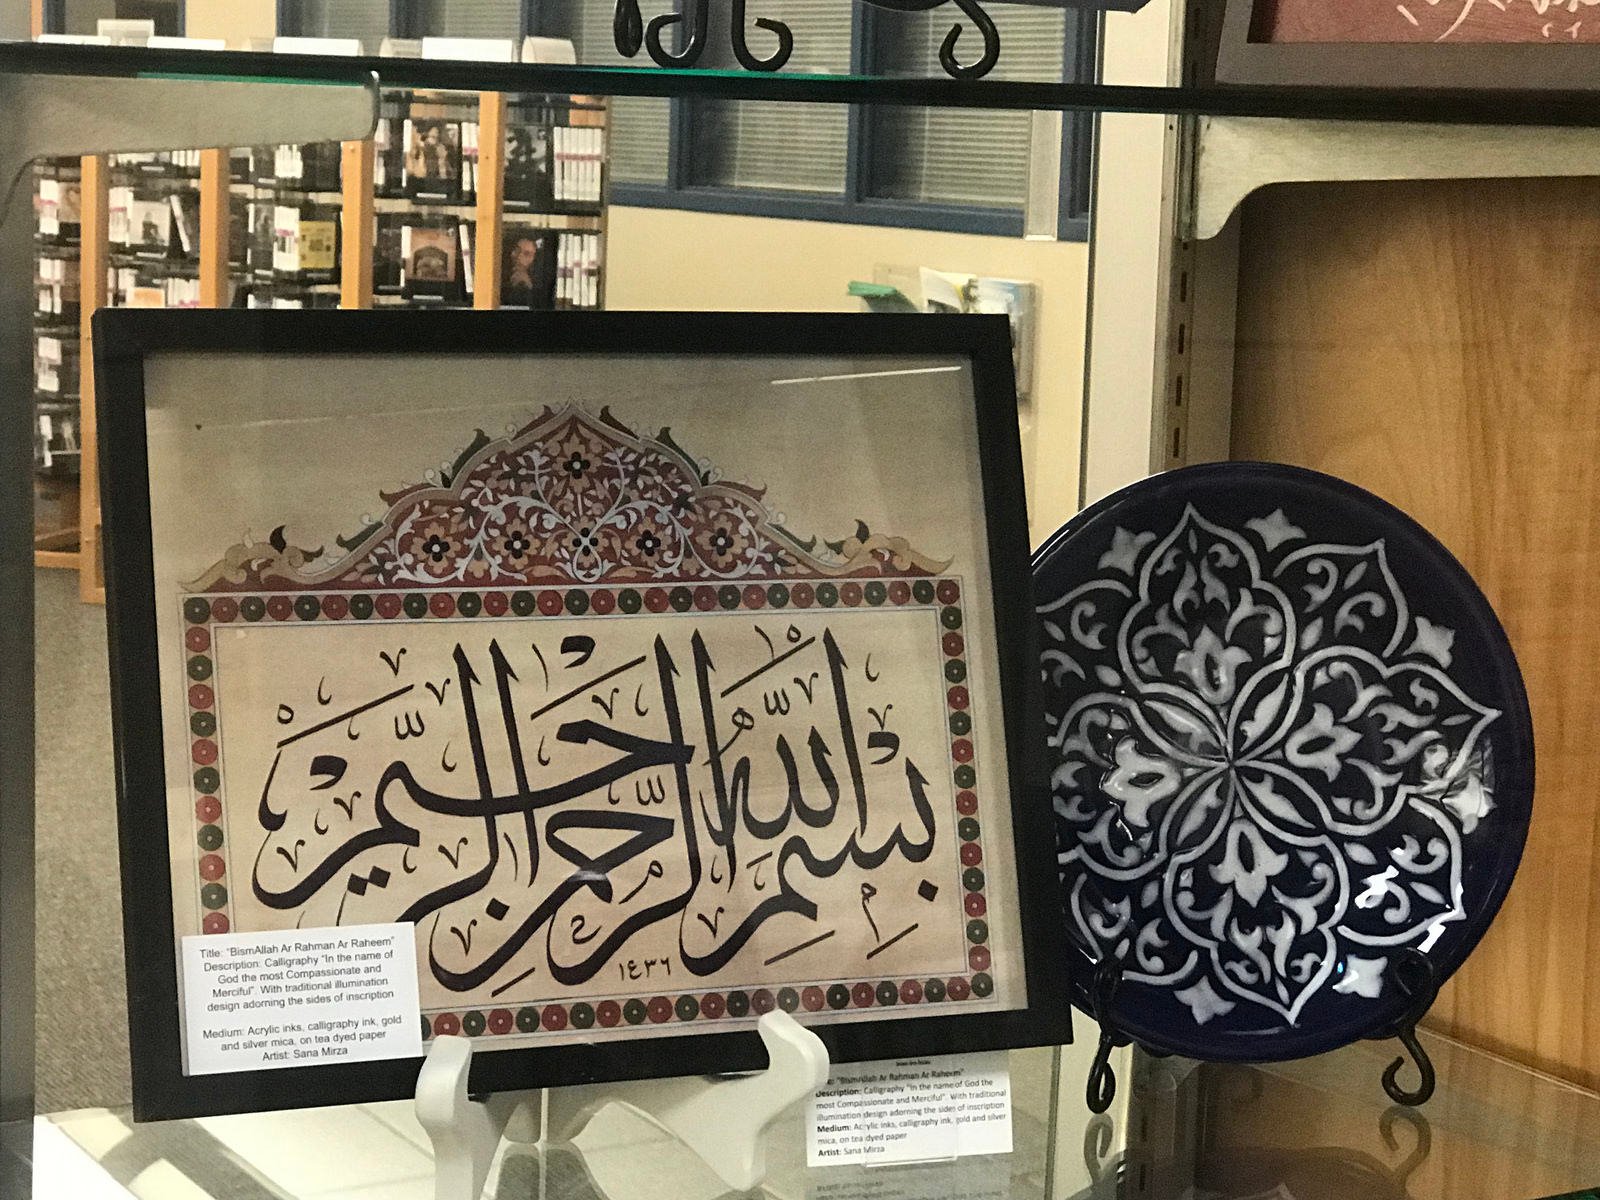 بِسْمِ اللهِ الرَّحْمٰنِ الرَّحِيْمِ
١٤٣٦
Title: "BismAllah Ar Rahman Ar Raheem"
Description: Calligraphy "In the name of
God the most Compassionate and
Merciful". With traditional illumination
design adorning the sides of inscription
Medium: Acrylic inks, calligraphy ink, gold
and silver mica, on tea dyed paper
Artist: Sana Mirza
Title: "BismAllah Ar Rahman Ar Raheem"
Description: Calligraphy "In the name of God the
most Compassionate and Merciful". With traditional
illumination design adorning the sides of inscription
Medium: Acrylic inks, calligraphy ink, gold and silver
mica, on tea dyed paper
Artist: Sana Mirza